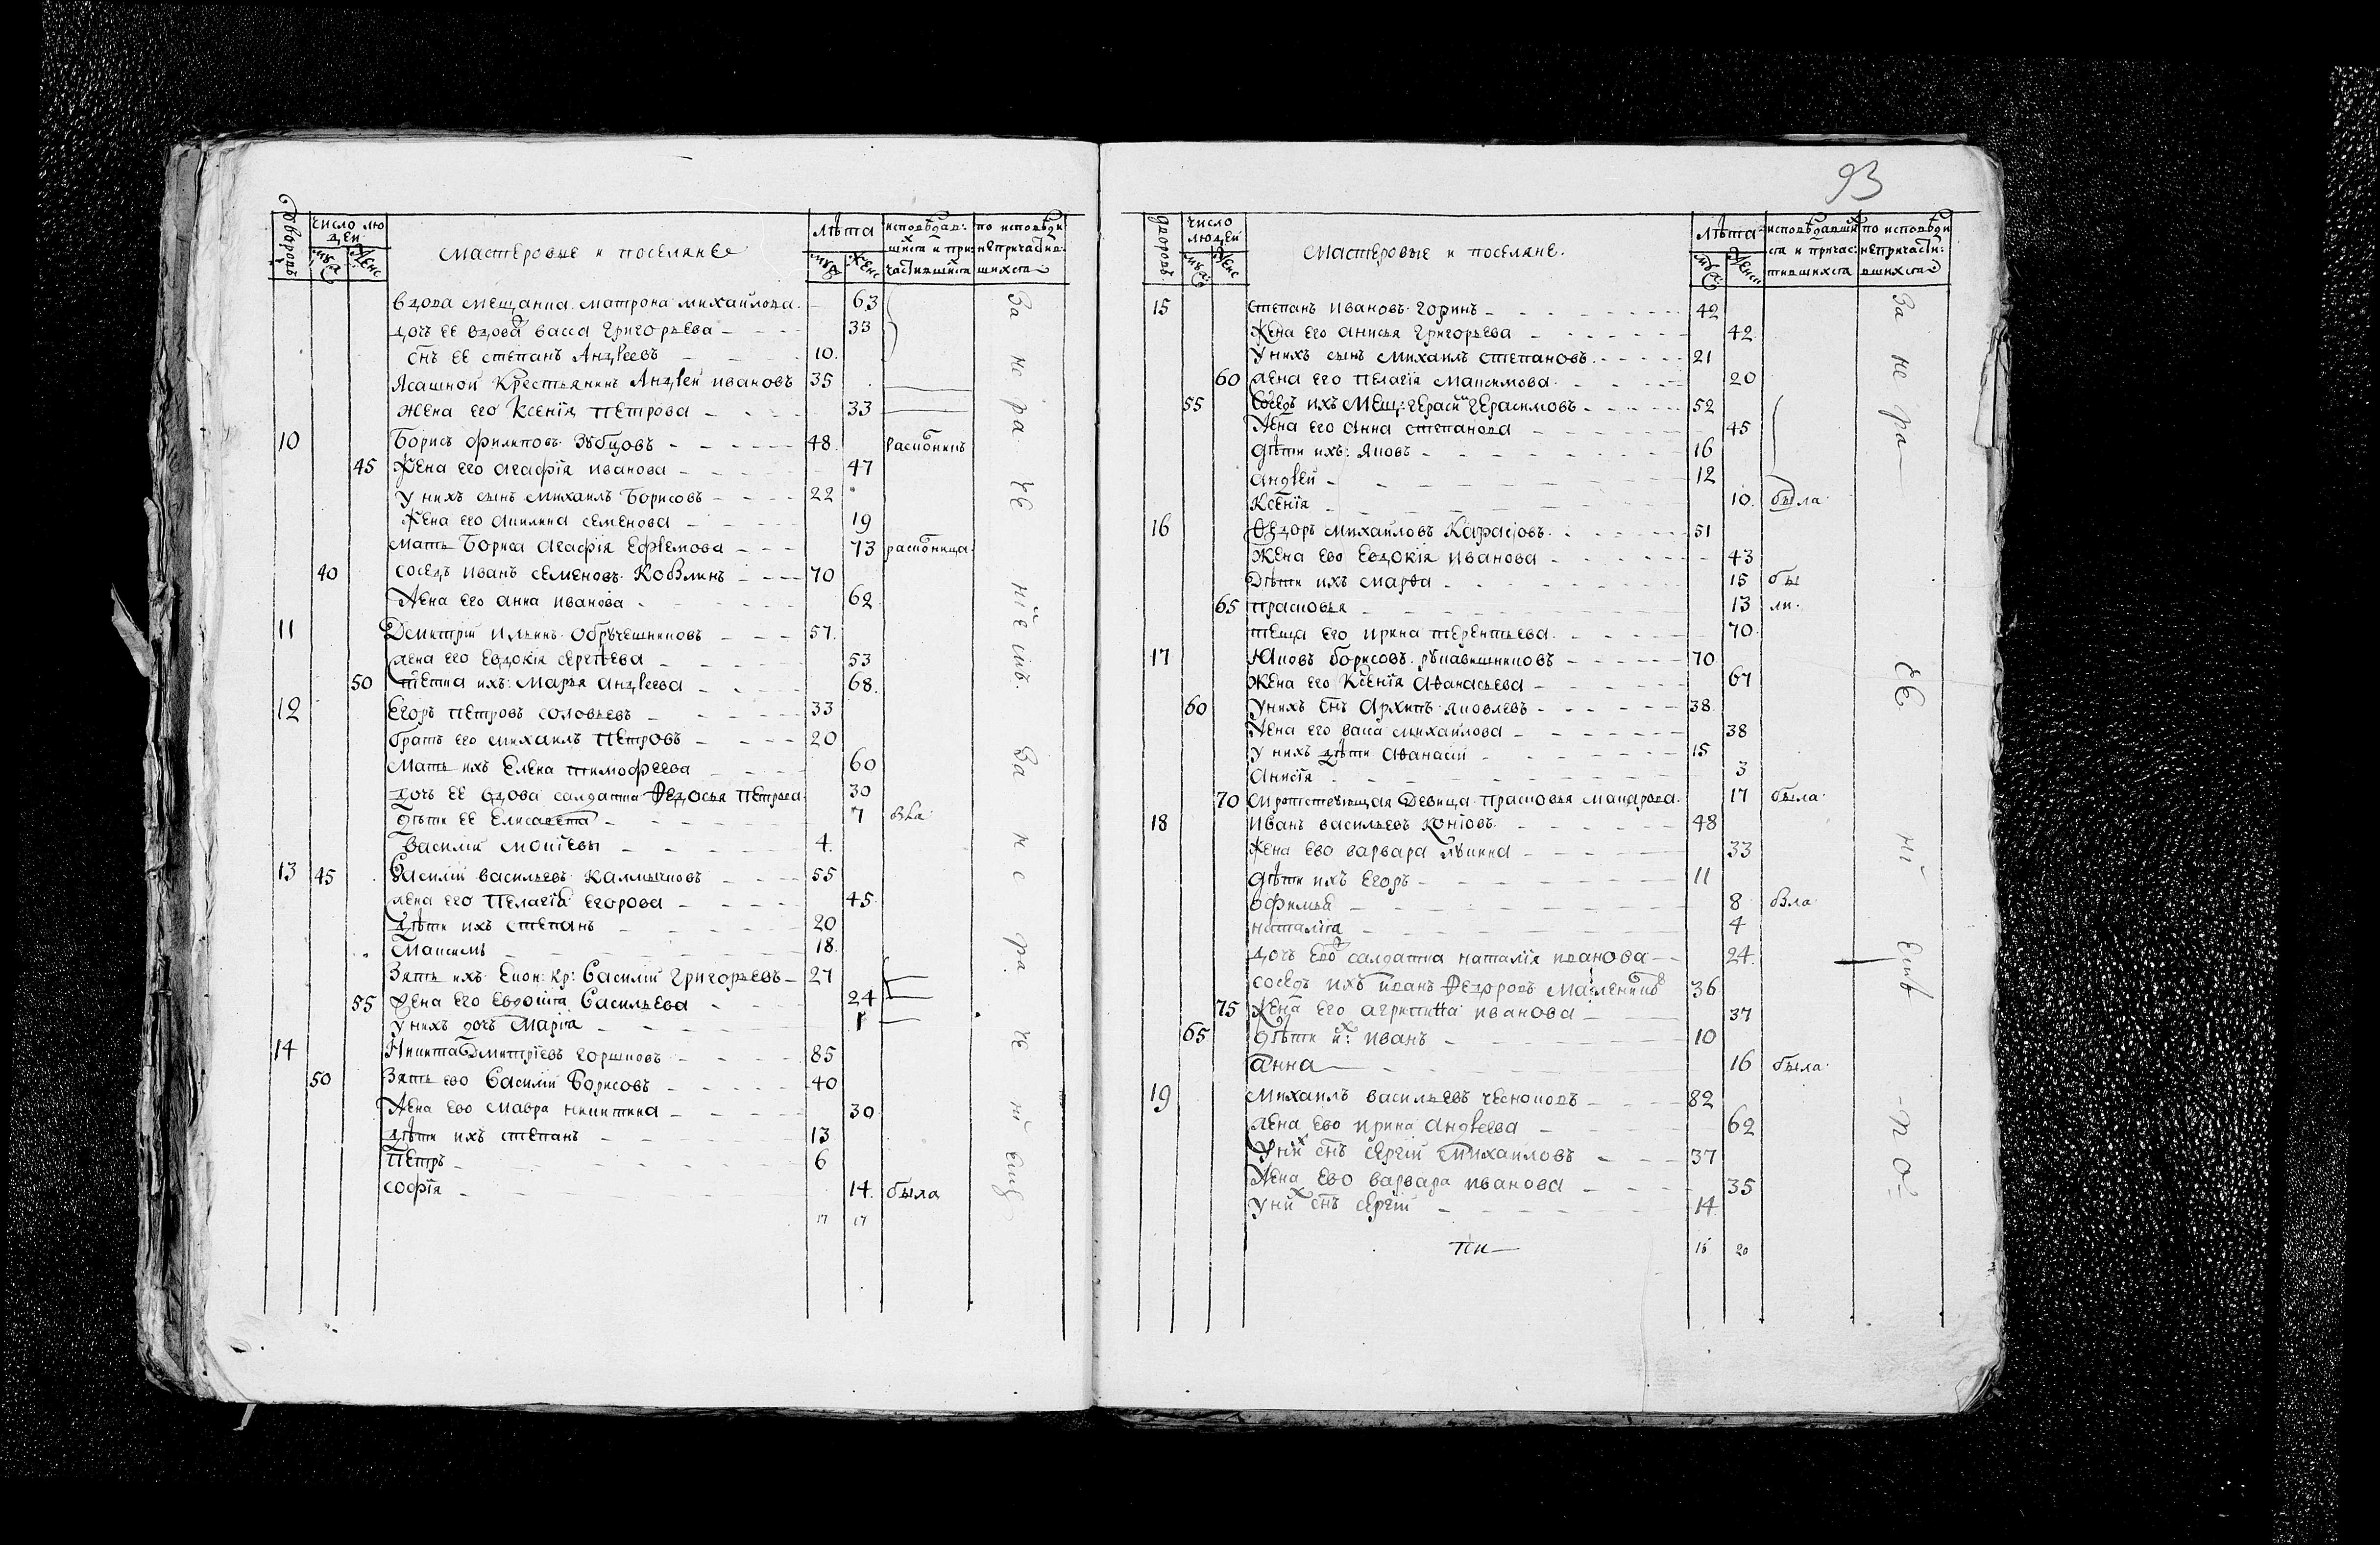 дворовъ число людей муж женс мастеровые и поселяне лѣта муж женс исповѣдавшихся и причастившихся по исповѣди непричастившихся
вдова мещанка матрона михаилова 63
дочь ее вдова васса григорьева 33
снъ ее степанъ Андреевъ 10
Ясашной крестьянинъ Андрей ивановъ 35
жена его Ксенiя петрова 33
10 Борисъ филиповъ Зубцовъ 48 раскольникъ
45 жена его агафiя иванова 47
у нихъ сынъ михаилъ Борисовъ 22
жена его акилина семенова 19
мать Бориса агафiя Ефремова 73 раскольница
40 сосѣдъ иванъ семеновъ 70
жена его анна иванова 62
11 Димитрiй ильинъ Обручешниковъ 57
жена его Евдокiя сергѣева 53
50 тетка ихъ марья андреева 68
12 Егоръ петровъ соловьевъ 33
братъ его михаилъ петровъ 20
мать ихъ Елена тимофеева 60
дочь ее вдова салдатка Федосья петрова 30
дѣти ее Елисавета 7 бла
Василiй 4
13 45 Василiй васильевъ калмычковъ 55
жена его пелагiя Егорова 45
дѣти ихъ степанъ 20
Максимъ 18
Зять ихъ Екон: кр: Василiй григорьевъ 27
55 жена его Васильева 24
у нихъ дочь марiя 1
14 Никита Дмитрiевъ горшковъ 85
50 Зять ево Василiй Борисовъ 40
жена ево мавра никитина 30
дѣти ихъ степанъ 13
петръ 6
софiя 14 была
17 17
За не ра че нiемъ За не ра че нi емъ
93
дворовъ число людей муж женс мастеровые и поселяне лѣта муж женс исповѣдавшихся и причастившихся по исповѣди непричастившихся
15 степанъ ивановъ горинъ 42
жена его анисья григорьева 42
у нихъ сынъ михаилъ степановъ 21
60 жена его пелагiя максимова 20
55 сосѣдъ ихъ мещ: герасимъ герасимовъ 52
жена его анна степанова 45
дѣти ихъ: яковъ 16
андрей 12
Ксенiя 10 была
16 Федоръ михаиловъ Карасовъ 51
жена ево Евдокiя иванова 43
дѣти ихъ марфа 15 бы
65 прасковья 13 ли
теща его ирина терентьева 70
17 Яковъ борисовъ рукавишниковъ 70
жена его Ксенiя афанасьева 67
60 у нихъ снъ архипъ яковлевъ 38
жена его васса михаилова 38
у нихъ дѣти афанасiй 15
анисiя 3
70 сиротствующая девица прасковья макарова 17 была
18 иванъ васильевъ 48
жена ево варвара 33
дѣти ихъ Егоръ 11
офимья 8 бла
наталiя 4
дочь ево салдатка наталiя иванова 24
сосѣдъ ихъ иванъ Федоровъ масленниковъ 36
75 жена его агрипина иванова 37
65 дѣти их: иванъ 10
анна 16 была
19 михаилъ васильевъ чесноковъ 82
жена ево ирина андреева 62
у них снъ сергiй михаиловъ 37
жена ево варвара иванова 35
у них снъ сергiй 14
15 20
За не ра че нi емъ